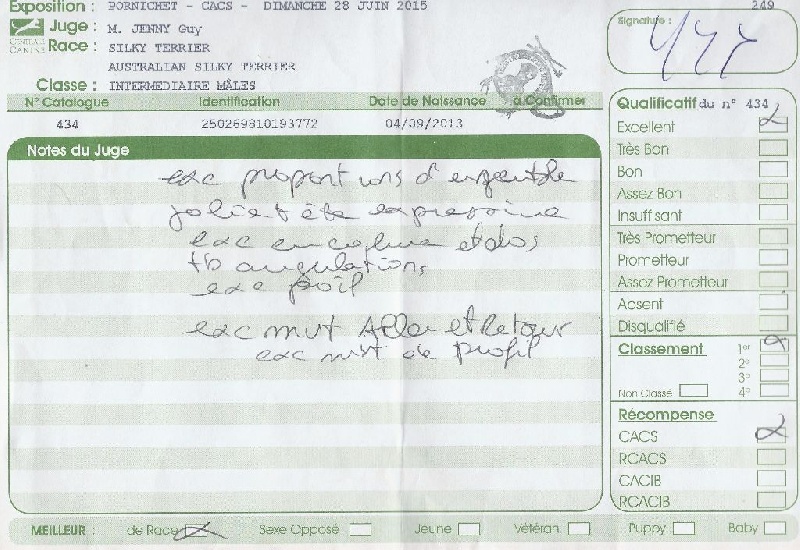 Exposition : PORNICHET - CACS - DIMANCHE 28 JUIN 2015
249
Juge : M. JENNY Guy
CENTRALE CANINE
Race : SILKY TERRIER
AUSTRALIAN SILKY TERRIER
Classe : INTERMEDIAIRE MÂLES
Signature :
N° Catalogue Identification Date de Naissance à Confirmer
434 250269810193772 04/09/2013
Notes du Juge
exc proportions d'ensemble
jolie tête expressive
exc encolure et dos
tb angulations
exc poil
exc mvt Aller et Retour
exc mvt de Profil
Qualificatif du n° 434
Excellent
Très Bon
Bon
Assez Bon
Insuffisant
Très Prometteur
Prometteur
Assez Prometteur
Absent
Disqualifié
Classement 1er
2e
3e
Non Classé 4e
Récompense
CACS
RCACS
CACIB
RCACIB
MEILLEUR : de Race Sexe Opposé Jeune Vétéran Puppy Baby